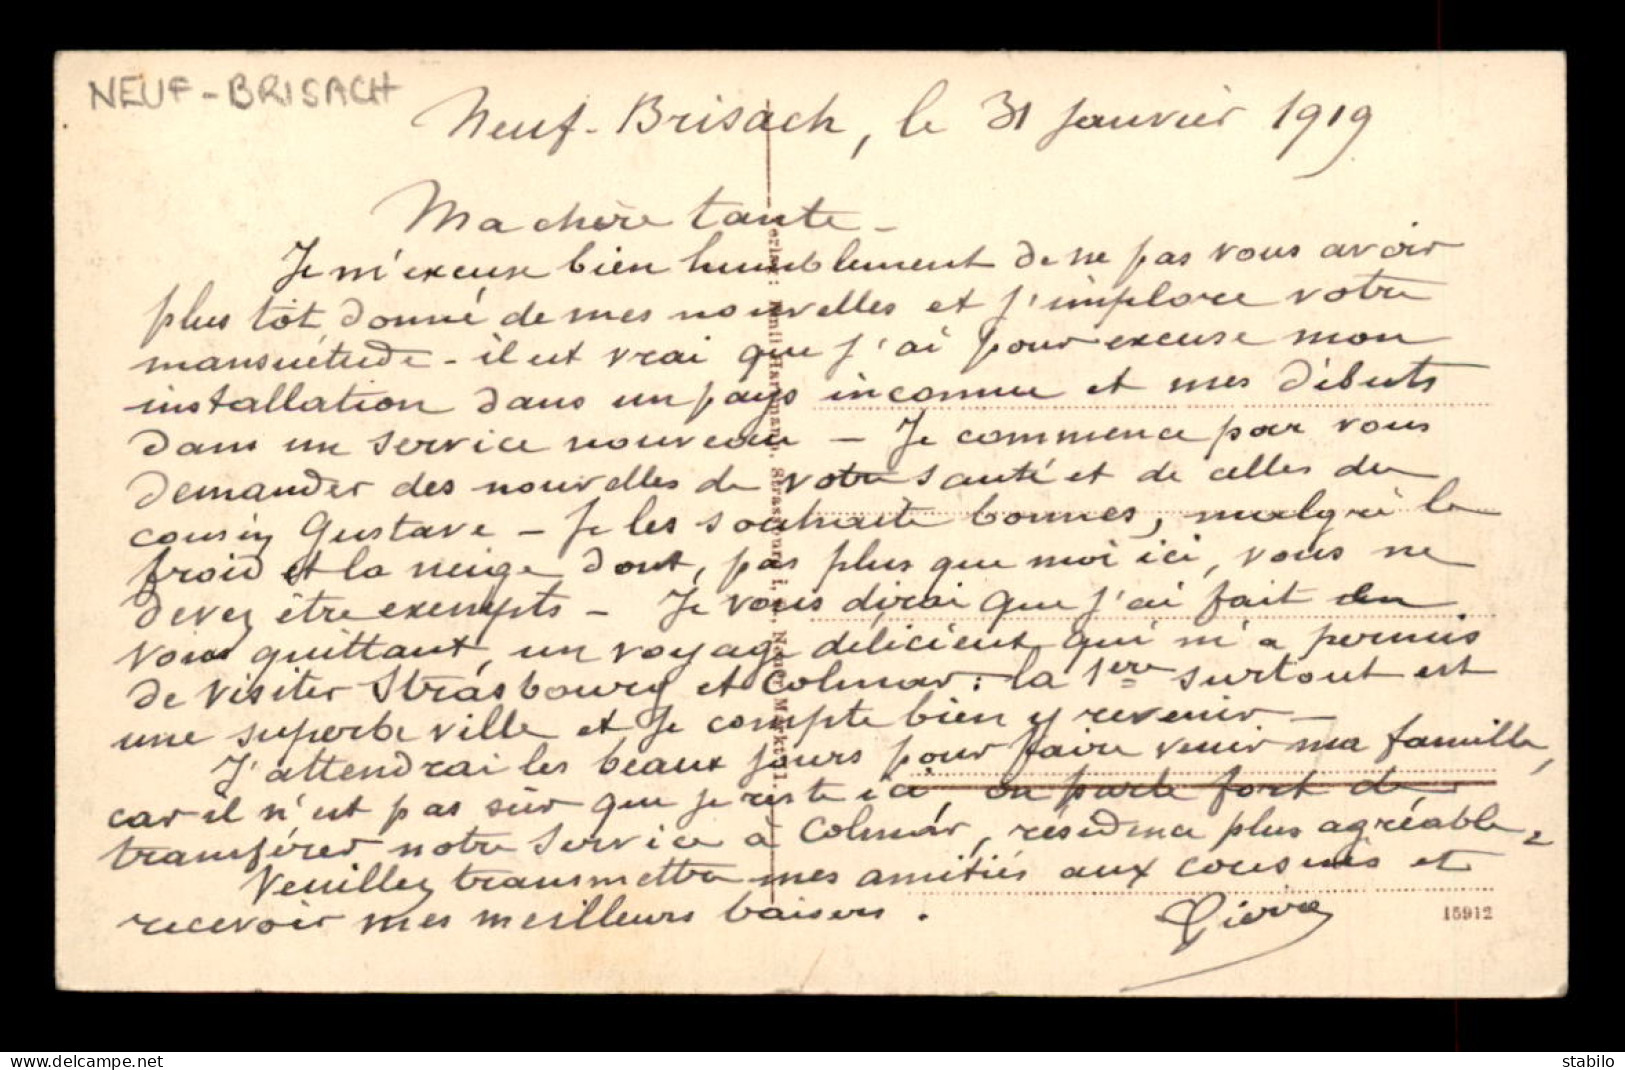 NEUF-BRISACH
Neuf-Brisach, le 31 Janvier 1919
Ma chère tante -
Je m'excuse bien humblement de ne pas vous avoir
plus tôt donné de mes nouvelles et j'implore votre
mansuétude - il est vrai que j'ai pour excuse mon
installation dans un pays inconnu et mes débuts
dans un service nouveau - Je commence par vous
demander des nouvelles de votre santé et de celles du
cousin Gustave - Je les souhaite bonnes, malgré le
froid et la neige dont, pas plus que moi ici, vous ne
devez être exempts - Je vous dirai que j'ai fait en
vous quittant, un voyage délicieux qui m'a permis
de visiter Strasbourg et Colmar : la 1ère surtout est
une superbe ville et je compte bien y revenir -
J'attendrai les beaux jours pour faire venir ma famille,
car il n'est pas sûr que je reste ici, on parle fort de
transférer notre service à Colmar, résidence plus agréable.
Veuillez transmettre mes amitiés aux cousins et
recevoir mes meilleurs baisers.
Pierre
15912
stabilo
https://www.delcampe.net